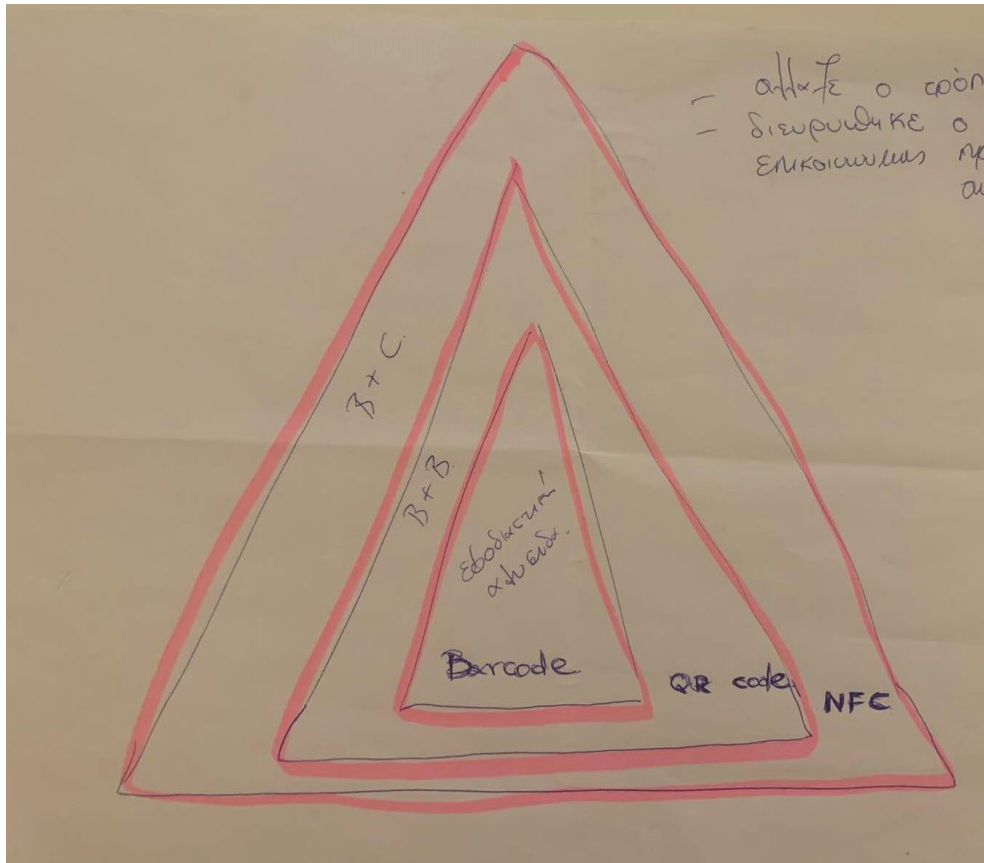 - αλλαξε ο τρόπ
- διευρυνθηκε ο
επικοινωνιας πρ
B + C.
B + B.
εφοδιαστική
αλυσιδα.
Barcode
QR code
NFC